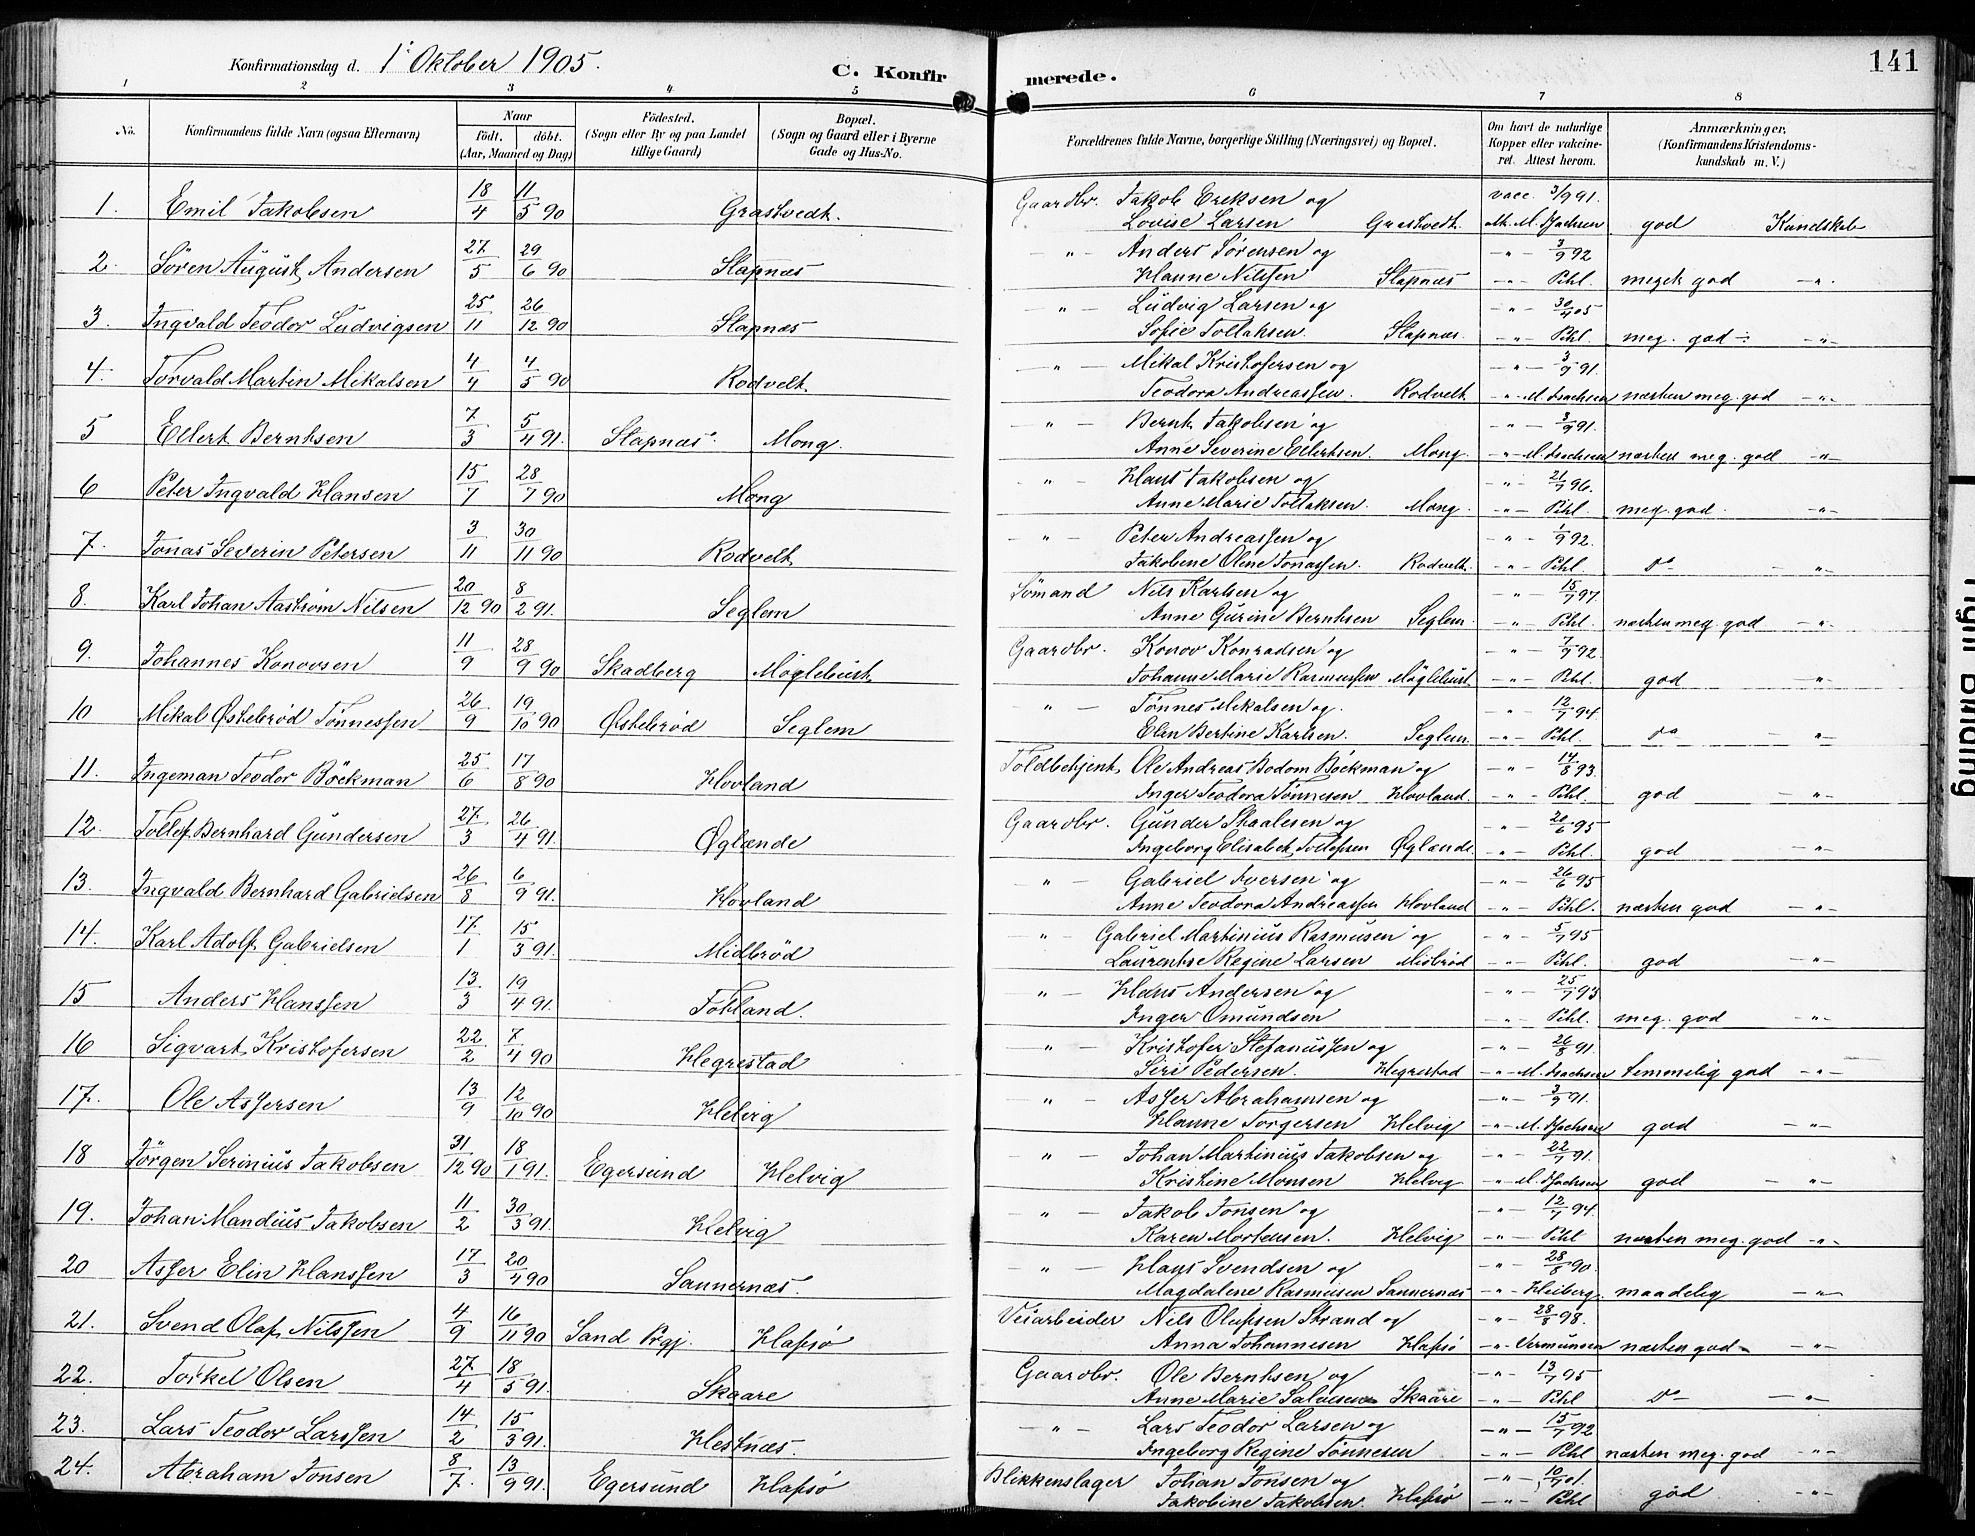 Konfirmationsdag d. 1' Oktober 1905. C. Konfirmerede. 141
1 2 3 4 5 6 7 8
No. Konfirmandens fulde Navn (ogsaa Efternavn) Naar født. døbt. (Aar, Maaned og Dag) Fødested. (Sogn eller By og paa Landet tillige Gaard) Bopæl. (Sogn og Gaard eller i Byerne Gade og Hus-No. Forældrenes fulde Navne, borgerlige Stilling (Næringsvei) og Bopæl. Om havt de naturlige Kopper eller vakcineret. Attest herom. Anmærkninger, (Konfirmandens Kristendomskundskab m. V.)
1. Emil Jakobsen 18/4 11/5 90 Grastvedt. Gaardbr. Jakob Eriksen og vacc. 3/9 91.
Lovise Larsen Grastvedt. M. Isachsen god Kundskab
2. Søren August Andersen 27/5 29/6 90 Stapnæs — " — Anders Sørensen og — " — 3/9 92
Hanne Nilssen Stapnæs — " — Pihl. meget god — " —
3. Ingvald Teodor Ludvigsen 25/11 26/12 90 Stapnæs " — Ludvig Larsen og — " — 30/4 05
Sofie Tollaksen. Stapnæs. — " — Pihl. meg. god — " —
4. Torvald Martin Mikalsen 4/4 4/5 90 Rodvelt. — " — Mikal Kristofersen og — " — 3/9 91.
Teodora Andreassen. Rodvelt — " — M. Isachsen næsten meg. god — " —
5 Ellert Berntsen 7/3 5/4 91. Stapnæs. Mong. " — Bernt Jakobsen og — " — 3/9 91.
Anne Severine Ellertsen. Mong. — " — M. Isachsen næsten meg. god — " —
6 Peter Ingvald Hansen 15/7 28/7 90 Mong " — Hans Jakobsen og — " — 21/7 96.
Anne Marie Tollaksen. Mong. — " — Pihl. meg. god. — " —
7. Jonas Severin Petersen 3/11 30/11 90 Rodvelt — " — Peter Andreassen og — " — 1/9 92.
Jakobine Oline Jonassen. Rodvelt. — " — Pihl. do — " —
8. Karl Johan Aastrøm Nilsen 20/12 90 8/2 91. Seglem Sømand Nils Karlsen og — " — 15/7 97.
Anne Gurine Berntsen Seglem. — " — Pihl. næsten meg. god — " —
9. Johannes Konovsen 11/9 28/9 90 Skadberg Møglebust Gaardbr. Konov Konradsen og — " — 7/9 92.
Johanne Marie Rasmussen Møglebust — " — Pihl. god — " —
10 Mikal Østebrød Tønnessen 26/9 19/10 90 Østebrød Seglem " — Tønnes Mikalsen og. — " — 12/7 94.
Elen Bertine Karlsen. Seglem. — " — Pihl. do — " —
11. Ingeman Teodor Böckman 25/6 17/8 90 Hovland Toldbetjent Ole Andreas Bodom Böckman og — " — 14/8 93.
Inger Teodora Tønnesen Hovland. — " — Pihl. god — " —
12. Tollef Bernhard Gundersen 27/3 26/4 91. Øglænde Gaardbr. Gunder Skaalesen og — " — 20/6 95
Ingeborg Elisabet Tollefsen Øglænde. — " — Pihl. god — " —
13. Ingvald Bernhard Gabrielsen 26/8 6/9 91. Hovland " — Gabriel Iversen og — " — 26/6 95
Anne Teodora Andreassen Hovland — " — Pihl. næsten god — " —
14. Karl Adolf Gabrielsen 17/1 15/3 91. Midbrød " — Gabriel Martinius Rasmusen og — " — 5/7 95
Laurentse Regine Larsen Midbrød — " — Pihl. god — " —
15 Anders Hanssen 13/3 19/4 91. Fotland. " — Hans Andersen og — " — 25/7 93
Inger Omundsen — " — Pihl. meg. god — " —
16 Sigvart Kristofersen 22/2 7/4 90 Hegrestad " — Kristofer Stefanussen og — " — 26/8 91.
Siri Pedersen. Hegrestad — " — M. Isachsen temmelig god — " —
17. Ole Assersen 13/9 12/10 90 Helvig " — Asser Abrahamsen og — " — 3/9 91.
Hanne Torgersen Helvig — " — M. Isachsen god — " —
18 Jørgen Serinius Jakobsen 31/12 90 18/1 91. Egersund Helvig " — Johan Martinius Jakobsen og — " — 22/7 91.
Kristine Monsen Helvig — " — M. Isachsen god — " —
19. Johan Mandius Jakobsen 11/2 30/3 91. Helvig " — Jakob Jonsen og — " — 12/7 94.
Karen Mortensen. Helvig — " — Pihl næsten meg. god — " —
20 Asser Elin Hanssen 17/3 20/4 90 Sannernæs. " — Hans Svendsen og — " — 28/8 90.
Magdalene Rasmusen Sannernæs — " — Heiberg. maadelig — " —
21. Svend Olaf Nilssen 4/9 16/11 90 Sand Prgj. Hafsø Veiarbeider Nils Olufsen Strand og — " — 28/8 98.
Anna Johannesen Hafsø — " — Vermundsen næsten god — " —
22. Torkel Olsen 27/4 18/5 91. Skaare Gaardbr. Ole Berntsen og — " — 13/7 95
Anne Marie Salvesen Skaare — " — Pihl do — " —
23. Lars Teodor Larssen 14/2 15/3 91. Hestnæs. " — Lars Teodor Larsen og — " — 15/7 92
Ingeborg Regine Tønnesen — " — Pihl næsten meg. god — " —
24. Abraham Jonsen 8/7. 13/9 91. Egersund Hafsø Blikkenslager Johan Jonsen og — " — 10/7 01.
Jakobine Jakobsen. Hafsø — " — Pihl god. — " —